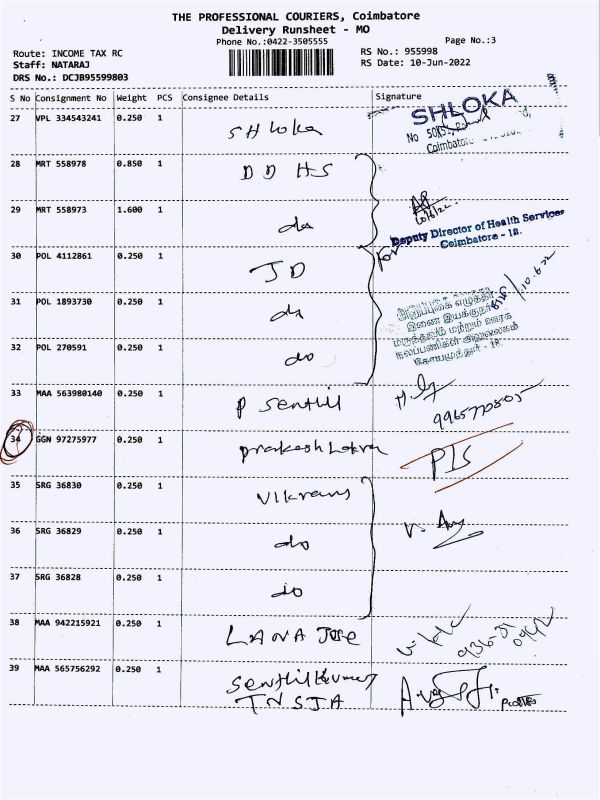 THE PROFESSIONAL COURIERS, Coimbatore
Delivery Runsheet - MO
Phone No.:0422-3505555
Page No.:3
Route: INCOME TAX RC
RS No.: 955998
Staff: NATARAJ
RS Date: 10-Jun-2022
DRS No.: DCJB95599803
S No Consignment No Weight PCS Consignee Details Signature
27 VPL 334543241 0.250 1 Shloka
SHLOKA
Coimbatore
28 MRT 558978 0.850 1 DDHS
29 MRT 558973 1.600 1 do
Deputy Director of Health Services
Coimbatore - 18.
30 POL 4112861 0.250 1 JD
31 POL 1893730 0.250 1 do
இணை இயக்குநர்
மருத்துவம் மற்றும் ஊரக
நலப்பணிகள் அலுவலகம்
கோயமுத்தூர் - 18.
32 POL 270591 0.250 1 do
33 MAA 563980140 0.250 1 P Senthil
34 GGN 97275977 0.250 1 Prakesh PIS
35 SRG 36830 0.250 1 Vikrans
36 SRG 36829 0.250 1 do
37 SRG 36828 0.250 1 do
38 MAA 942215921 0.250 1 LANA Jose
39 MAA 565756292 0.250 1 Senthil Kumar
TNSJA